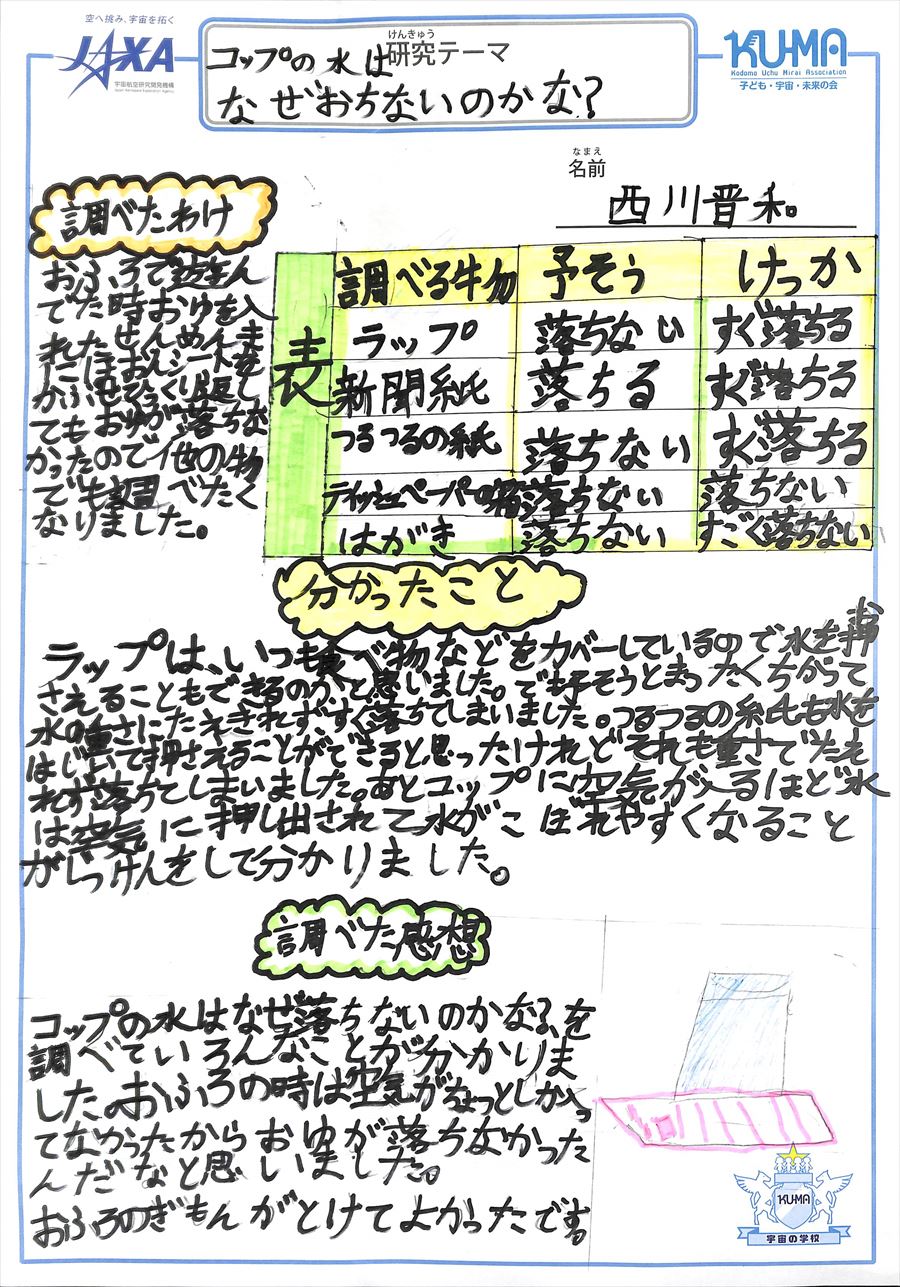 空へ挑み、宇宙を拓く
JAXA
宇宙航空研究開発機構
Japan Aerospace Exploration Agency
けんきゅう
研究テーマ
コップの水は
なぜおちないのかな?
KU-MA
Kodomo Uchu Mirai Association
子ども・宇宙・未来の会
なまえ
名前
西川晋和。
調べたわけ
おふろで遊ん
でた時おゆを入
れたせんめんき
にほおんシートを
かぶせひっくり返し
てもおゆが落ちな
かったので他の物
でも調べたく
なりました。
表
調べる物 予そう けっか
ラップ 落ちない すぐ落ちる
新聞紙 落ちる すぐ落ちる
つるつるの紙 落ちない すぐ落ちる
ティッシュペーパーの箱 落ちない 落ちない
はがき 落ちない すごく落ちない
分かったこと
ラップは、いつも食べ物などをカバーしているので水を押
さえることもできるのかと思いました。でも予そうとまったくちがって
水の重さにたえきれず、すぐ落ちてしまいました。つるつるの紙も水を
はじいて押さえることができると思ったけれどそれも重さでたえ
れず落ちてしまいました。あとコップに空気が入るほど水
は空気に押し出されて水がこぼれやすくなること
がじっけんをして分かりました。
調べた感想
コップの水はなぜ落ちないのかな?を
調べていろんなことが分かりま
した。おふろの時は空気がちょっとしか入っ
てなかったからおゆが落ちなかった
んだなと思いました。
おふろのぎもんがとけてよかったです。
KU-MA
宇宙の学校